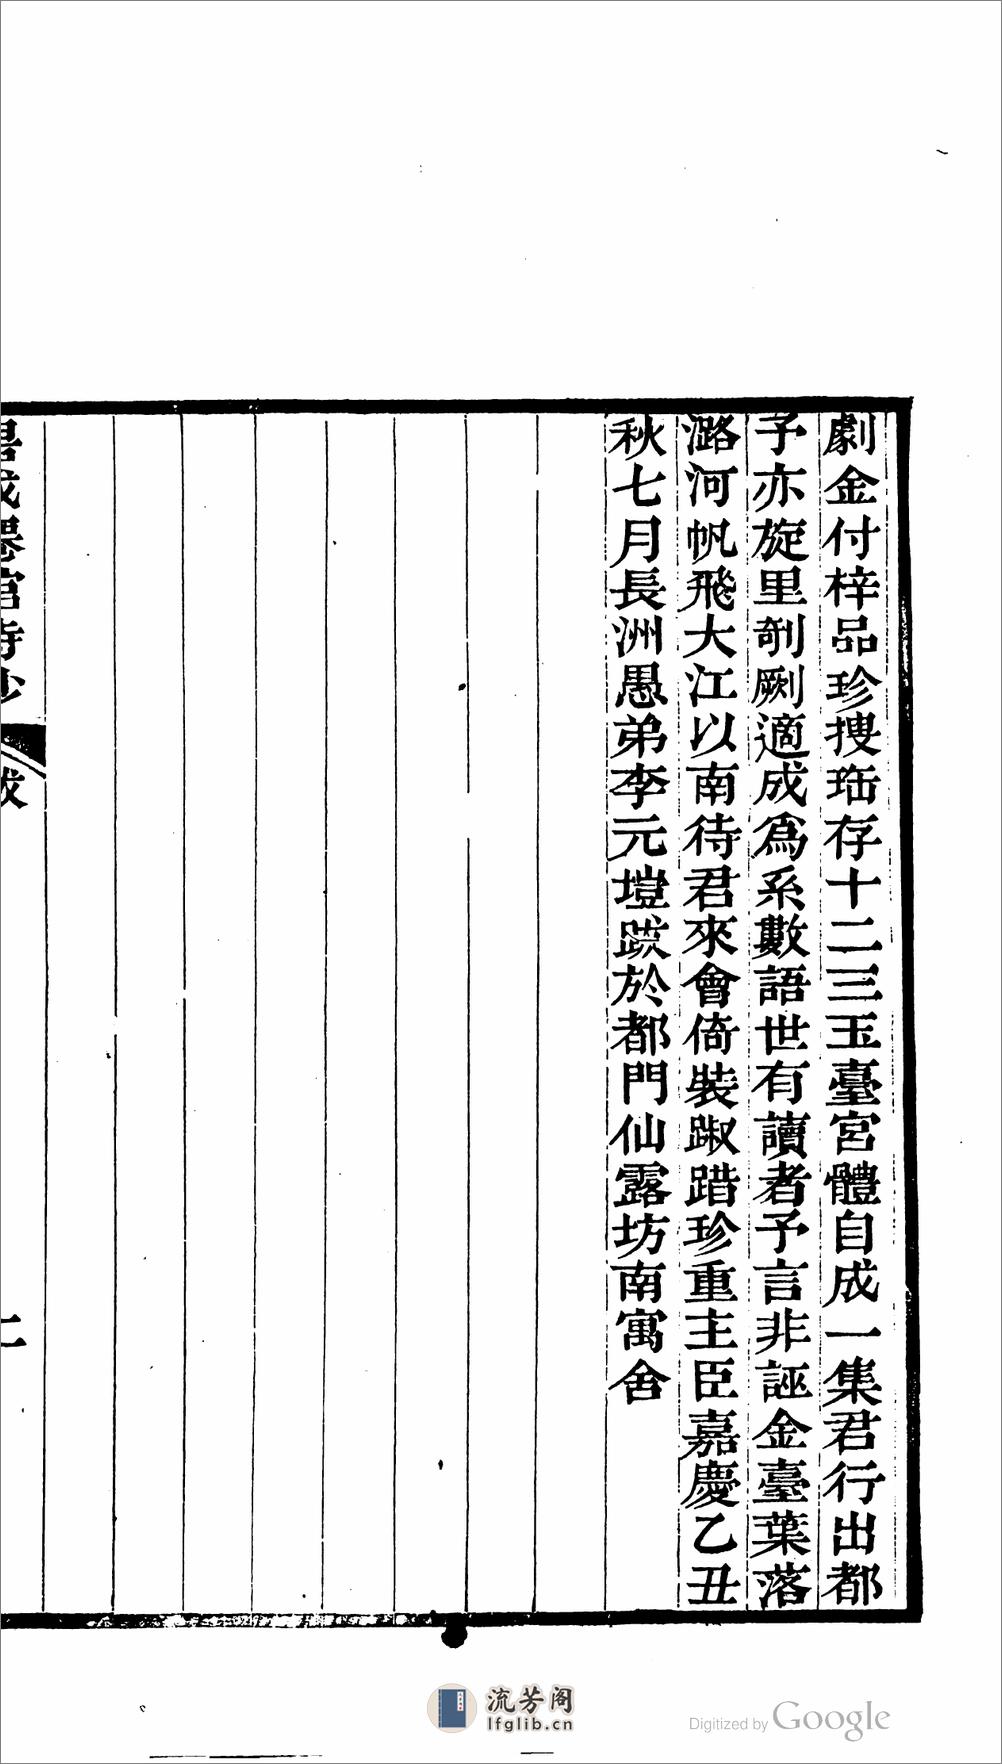 劇金付梓品珍搜珤存十二三玉臺宮體自成一集君行出都
子亦旋里剞劂適成爲系數語世有讀者予言非誣金臺葉落
潞河帆飛大江以南待君來會倚裝踧踖珍重主臣嘉慶乙丑
秋七月長洲愚弟李元塏跋於都門仙露坊南寓舍
跋
二
流芳阁
lfglib.cn
Digitized by Google